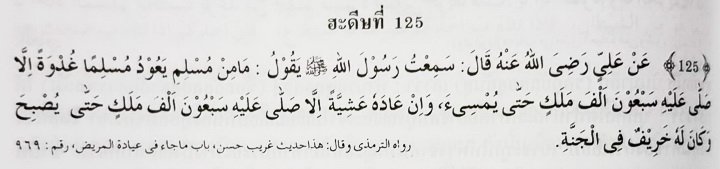 ฮะดีษที่ 125
﴿125﴾ عَنْ عَلِيٍّ رَضِىَ اللهُ عَنْهُ قَالَ: سَمِعْتُ رَسُوْلَ اللهِ ﷺ يَقُوْلُ : مَامِنْ مُسْلِمٍ يَعُوْدُ مُسْلِمًا غُدْوَةً اِلَّا
صَلَّى عَلَيْهِ سَبْعُوْنَ اَلْفَ مَلَكٍ حَتَّى يُمْسِىَ، وَاِنْ عَادَهُ عَشِيَّةً اِلَّا صَلَّى عَلَيْهِ سَبْعُوْنَ اَلْفَ مَلَكٍ حَتَّى يُصْبِحَ
وَكَانَ لَهُ خَرِيْفٌ فِى الْجَنَّةِ. رواه الترمذى وقال: هذاحديث غريب حسن، باب ماجاء فى عيادة المريض، رقم: ٩٦٩